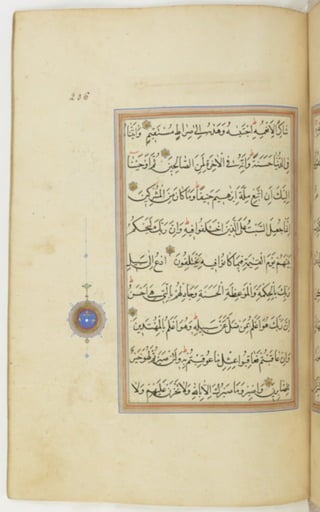 شاكرا لانعمه اجتبيه وهديه الى صراط مستقيم واتيناه
فى الدنيا حسنة وانه فى الاخرة لمن الصالحين ثم اوحينا
اليك ان اتبع ملة ابرهيم حنيفا وما كان من المشركين
انما جعل السبت على الذين اختلفوا فيه وان ربك ليحكم
بينهم يوم القيمة فيما كانوا فيه يختلفون ادع الى سبيل
ربك بالحكمة والموعظة الحسنة وجادلهم بالتى هى احسن
ان ربك هو اعلم بمن ضل عن سبيله وهو اعلم بالمهتدين
وان عاقبتم فعاقبوا بمثل ما عوقبتم به ولئن صبرتم لهو خير
للصابرين واصبر وما صبرك الا بالله ولا تحزن عليهم ولا